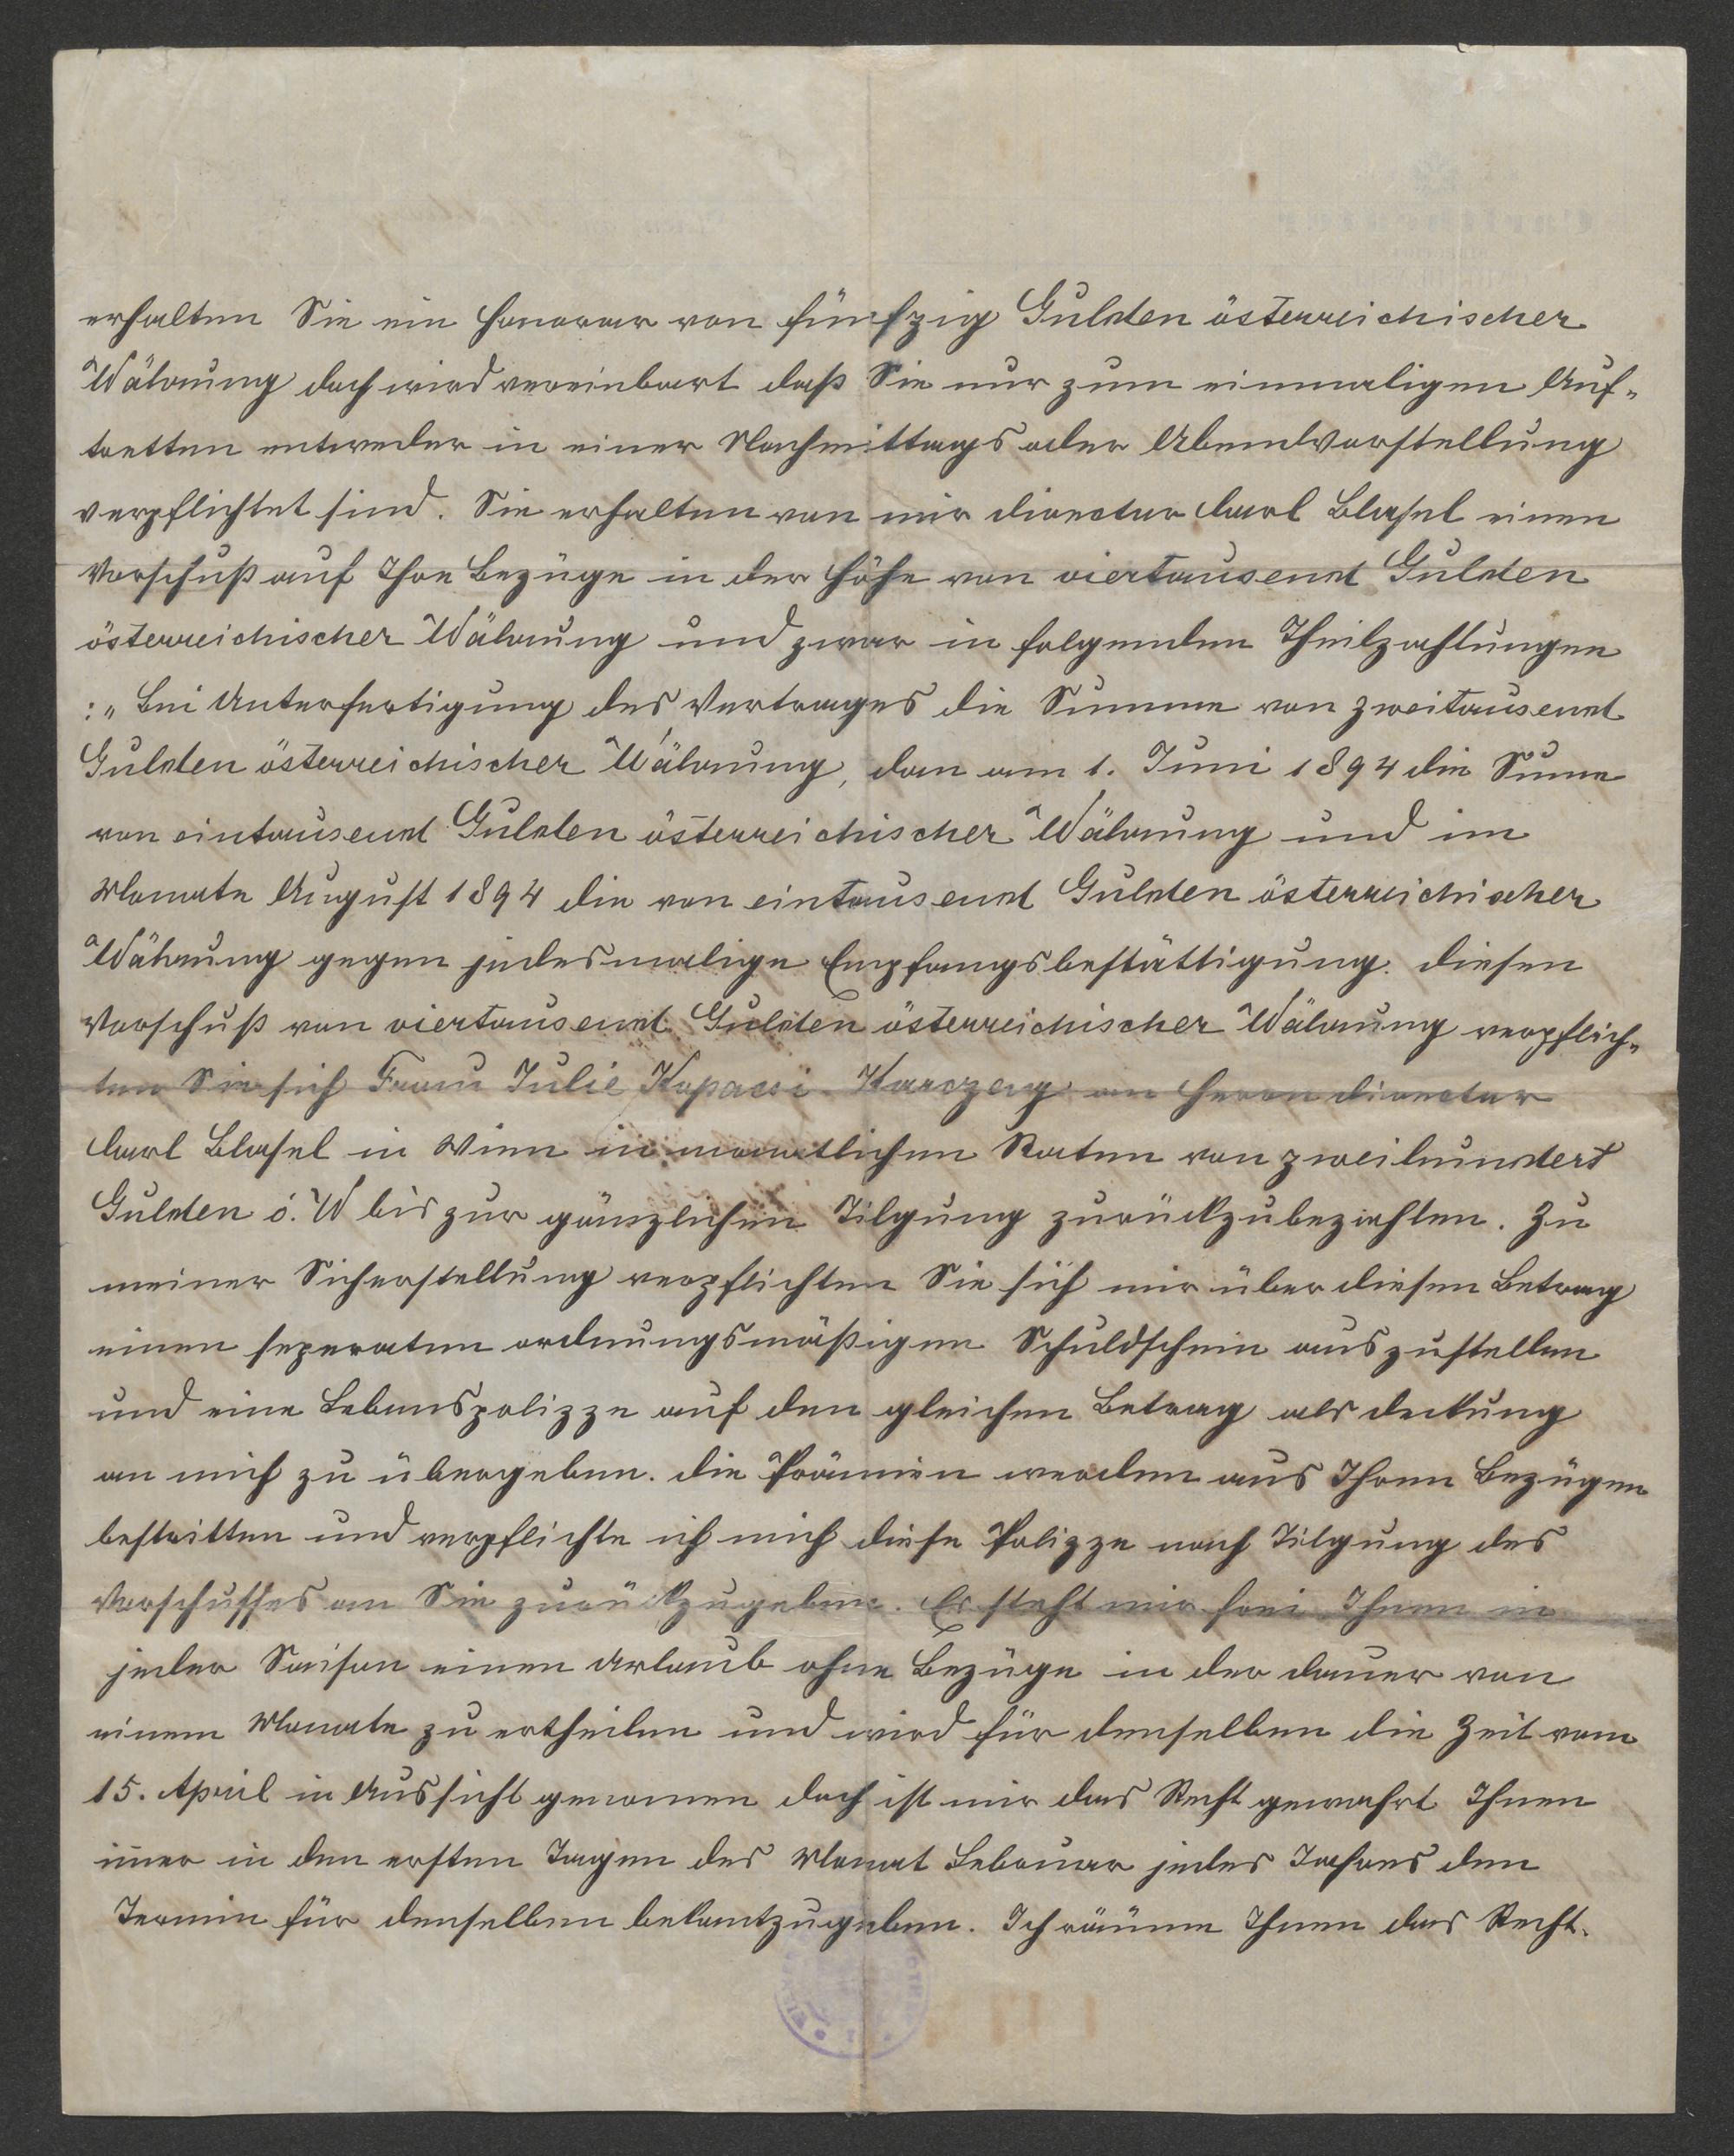 erhalten Sie ein Honorar von fünfzig Gulden österreichischer
Währung doch wird vereinbart daß Sie nur zum einmaligen Auf-
tretten entweder in einer Nachmittags oder Abendvorstellung
verpflichtet sind. Sie erhalten von mir Director Carl Blasel einen
Vorschuß auf Ihre Bezüge in der Höhe von viertausend Gulden
österreichischer Währung und zwar in folgenden Theilzahlungen
:„ Bei Unterfertigung des Vertrages die Summe von zweitausend
Gulden österreichischer Währung, dan am 1. Juni 1894 die Sume
von eintausend Gulden österreichischer Währung und im
Monate August 1894 die von eintausend Gulden österreichischer
Währung gegen jedesmalige Empfangsbestättigung. Diesen
Vorschuß von viertausend Gulden österreichischer Währung verpflich-
ten Sie sich Frau Julie Kopacsi-Karczag an Herrn Director
Carl Blasel in Wien in monatlichen Raten von zweihundert
Gulden ö. W bis zur gänzlichen Tilgung zurückzubezahlen. Zu
meiner Sicherstellung verpflichten Sie sich mir über diesen Betrag
einen seperaten ordnungsmäßigen Schuldschein auszustellen
und eine Lebenspolizze auf den gleichen Betrag als Deckung
an mich zu übergeben. Die Prämien werden aus Ihren Bezügen
bestritten und verpflichte ich mich diese Polizze nach Tilgung des
Vorschusses an Sie zurückzugeben. Es steht mir frei Ihnen in
jeder Saison einen Urlaub ohne Bezüge in der Dauer von
einem Monate zu ertheilen und wird für denselben die Zeit vom
15. April in Aussicht genomen doch ist mir das Recht gewahrt Ihnen
imer in den ersten Tagen des Monat Februar jedes Jahres den
Termin für denselben bekantzugeben. Ich räume Ihnen das Recht.